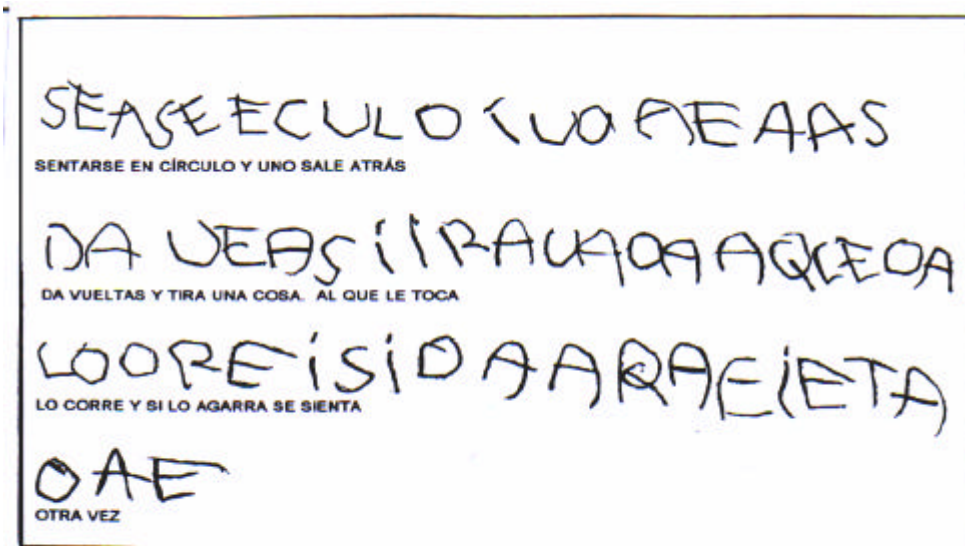 SEASEECULO iUO AEAAS
SENTARSE EN CÍRCULO Y UNO SALE ATRÁS
DA UEAS i iRAUAOA AQLEOA
DA VUELTAS Y TIRA UNA COSA. AL QUE LE TOCA
LOOREiSiOAARAEiETA
LO CORRE Y SI LO AGARRA SE SIENTA
OAE
OTRA VEZ